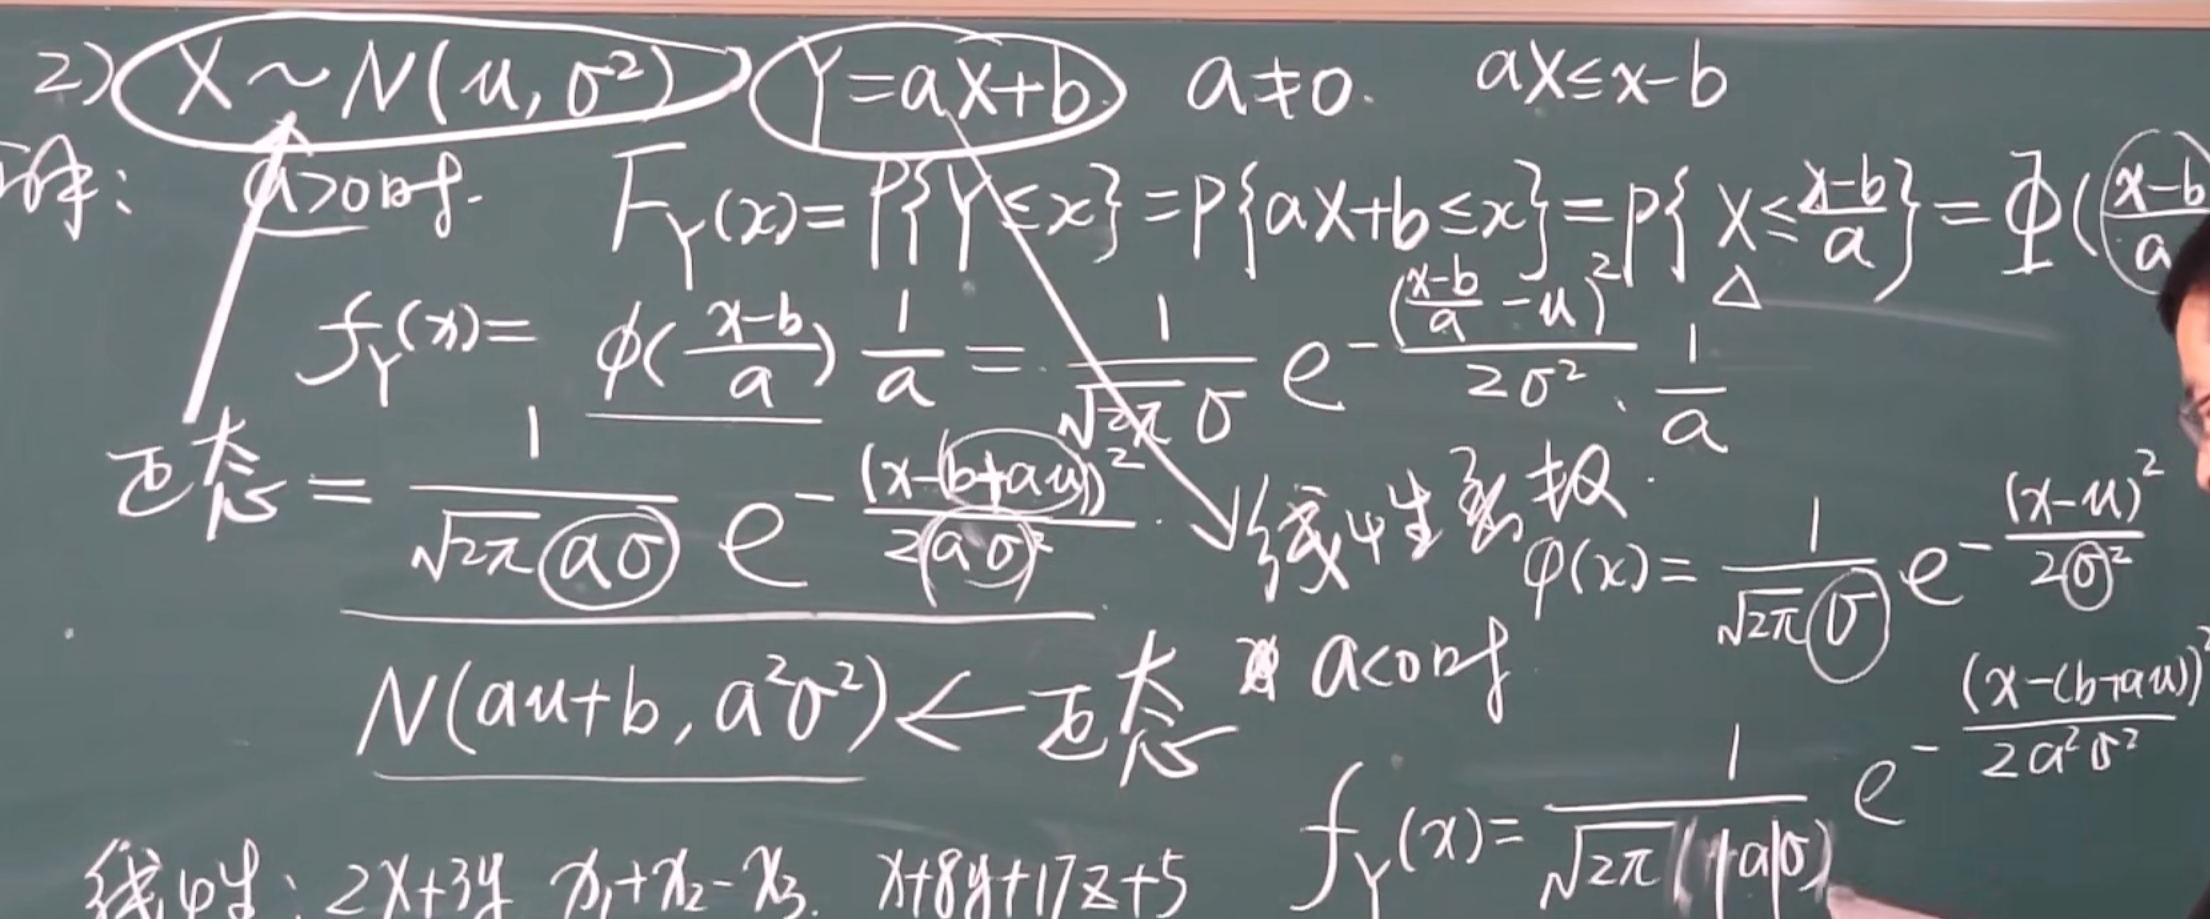 2) X ~ N(u, σ²) Y=aX+b a≠0. aX≤x-b
解: a>0时. F_Y(x)=P{Y≤x}=P{aX+b≤x}=P{X≤(x-b)/a}=Φ((x-b)/a
f_Y(x)= φ((x-b)/a) 1/a = 1/(√2π σ) e^-((x-b)/a -u)²/2σ² · 1/a
正态 = 1/(√2π aσ) e^-(x-(b+au))²/2(aσ)²
线性函数.
φ(x)= 1/(√2π σ) e^-(x-u)²/2σ²
N(au+b, a²σ²) ← 正态
a<0时
f_Y(x)= 1/(√2π (|a|σ) e^-(x-(b+au))²/2a²σ²
线性: 2x+3y x₁+x₂-x₃. x+8y+17z+5